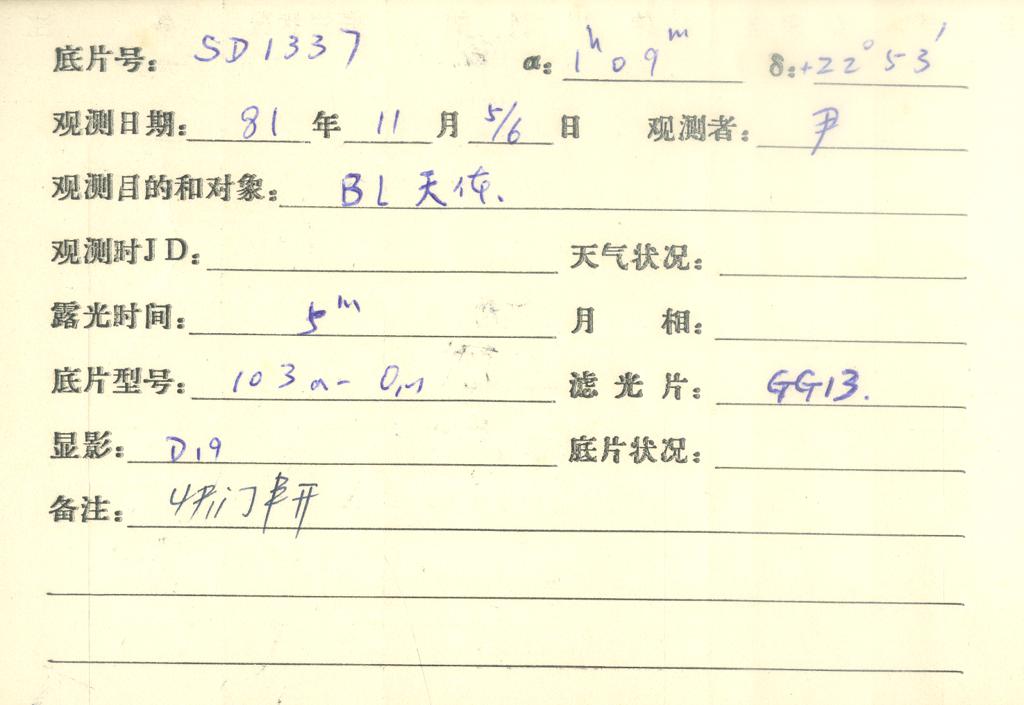 底片号: SD1337 α: 1h 09m δ: +22°53′
观测日期: 81 年 11 月 5/6 日 观测者: 尹
观测目的和对象: BL 天体.
观测时JD: 天气状况:
露光时间: 5m 月 相:
底片型号: 103a-O, 滤光片: GG13.
显影: D19 底片状况:
备注: